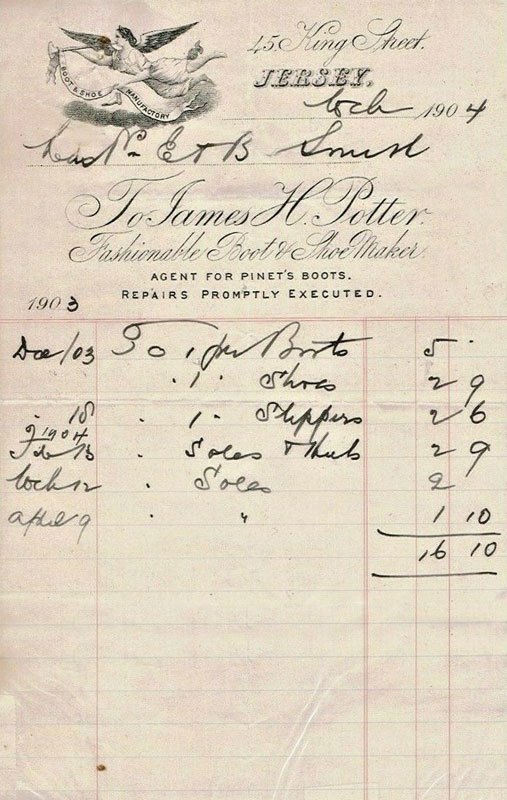 45 King Street.
JERSEY,
BOOT & SHOE MANUFACTORY
1904
E & B Smith
To James H. Potter.
Fashionable Boot & Shoe Maker.
AGENT FOR PINET'S BOOTS.
REPAIRS PROMPTLY EXECUTED.
1903
Dec/03 To 1 pr Boots 5 .
. 1 . Shoes 2 9
. 18 . 1 . Slippers 2 6
1904
Feb 13 . Soles & Heels 2 9
Mch 12 . Soles 2
April 9 . " 1 10
16 10